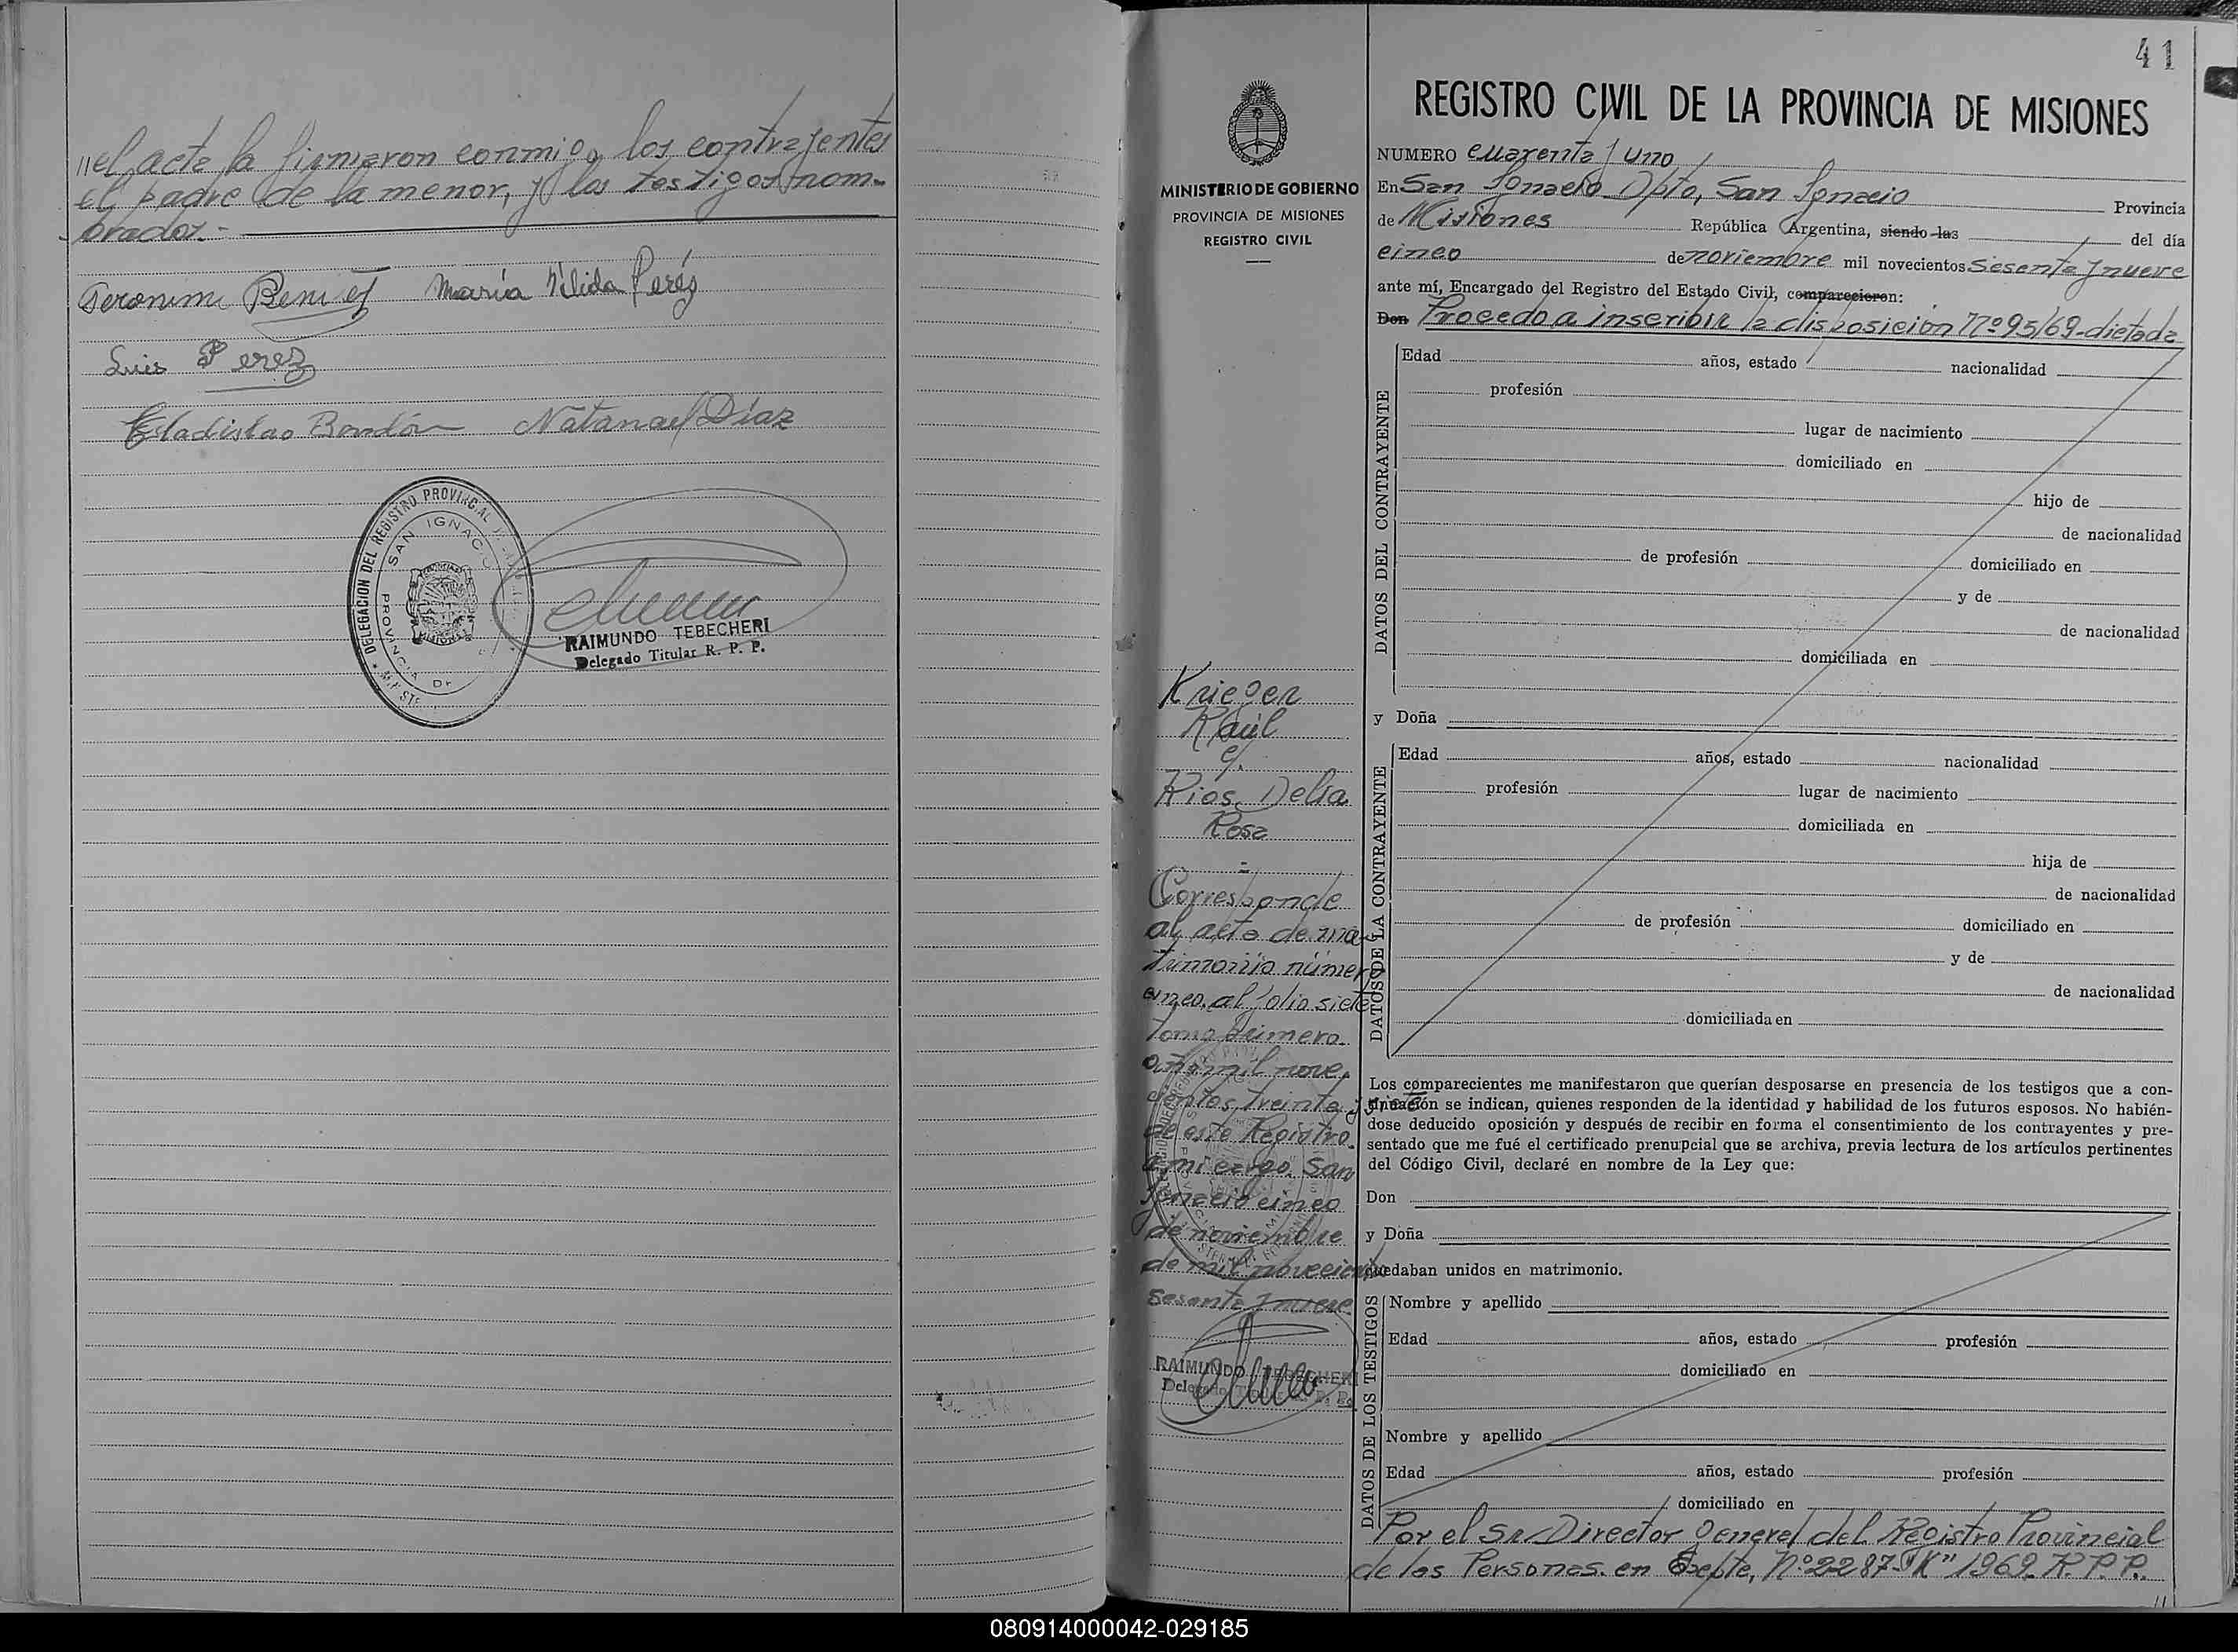 //el acta la firmaron conmigo los contrayentes
el padre de la menor, y los testigos nom-
brados.-
Geronimo Benitez María Nélida Peréz
Luis Perez
Estadislao Bondón Natanael Diaz
DELEGACION DEL REGISTRO PROVINCIAL
SAN IGNACIO
PROVINCIA DE
RAIMUNDO TEBECHERI
Delegado Titular R. P. P.
41
MINISTERIO DE GOBIERNO
PROVINCIA DE MISIONES
REGISTRO CIVIL
Krieger
Raúl
c/.
Rios, Delia
Rosa
-
Corresponde
al acta de ma
trimonio número
cinco, al folio siete
Tomo primero
año mil nove
cientos treinta y
de este Registro
a mi cargo. San
Ignacio cinco
de noviembre
de mil novecientos
sesenta y nueve
RAIMUNDO TEBECHERI
Delegado Titular R. P. P.
REGISTRO CIVIL DE LA PROVINCIA DE MISIONES
NUMERO cuarenta y uno
En San Ignacio Dpto, San Ignacio Provincia
de Misiones República Argentina, siendo las del día
cinco de noviembre mil novecientos sesenta y nueve
ante mí, Encargado del Registro del Estado Civil, comparecieron:
Don Procedo a inscribir la disposición Nº 95/69-dictada
DATOS DEL CONTRAYENTE
Edad años, estado nacionalidad
profesión
lugar de nacimiento
domiciliado en
hijo de
de nacionalidad
de profesión domiciliado en
y de
de nacionalidad
domiciliada en
y Doña
DATOS DE LA CONTRAYENTE
Edad años, estado nacionalidad
profesión lugar de nacimiento
domiciliada en
hija de
de nacionalidad
de profesión domiciliado en
y de
de nacionalidad
domiciliada en
Los comparecientes me manifestaron que querían desposarse en presencia de los testigos que a con-
tinuación se indican, quienes responden de la identidad y habilidad de los futuros esposos. No habién-
dose deducido oposición y después de recibir en forma el consentimiento de los contrayentes y pre-
sentado que me fué el certificado prenupcial que se archiva, previa lectura de los artículos pertinentes
del Código Civil, declaré en nombre de la Ley que:
Don
y Doña
quedaban unidos en matrimonio.
DATOS DE LOS TESTIGOS
Nombre y apellido
Edad años, estado profesión
domiciliado en
Nombre y apellido
Edad años, estado profesión
domiciliado en
Por el Sr. Director General del Registro Provincial
de las Personas. en Expte, Nº 2287-"K" 1969. R. P. P.
//
080914000042-029185